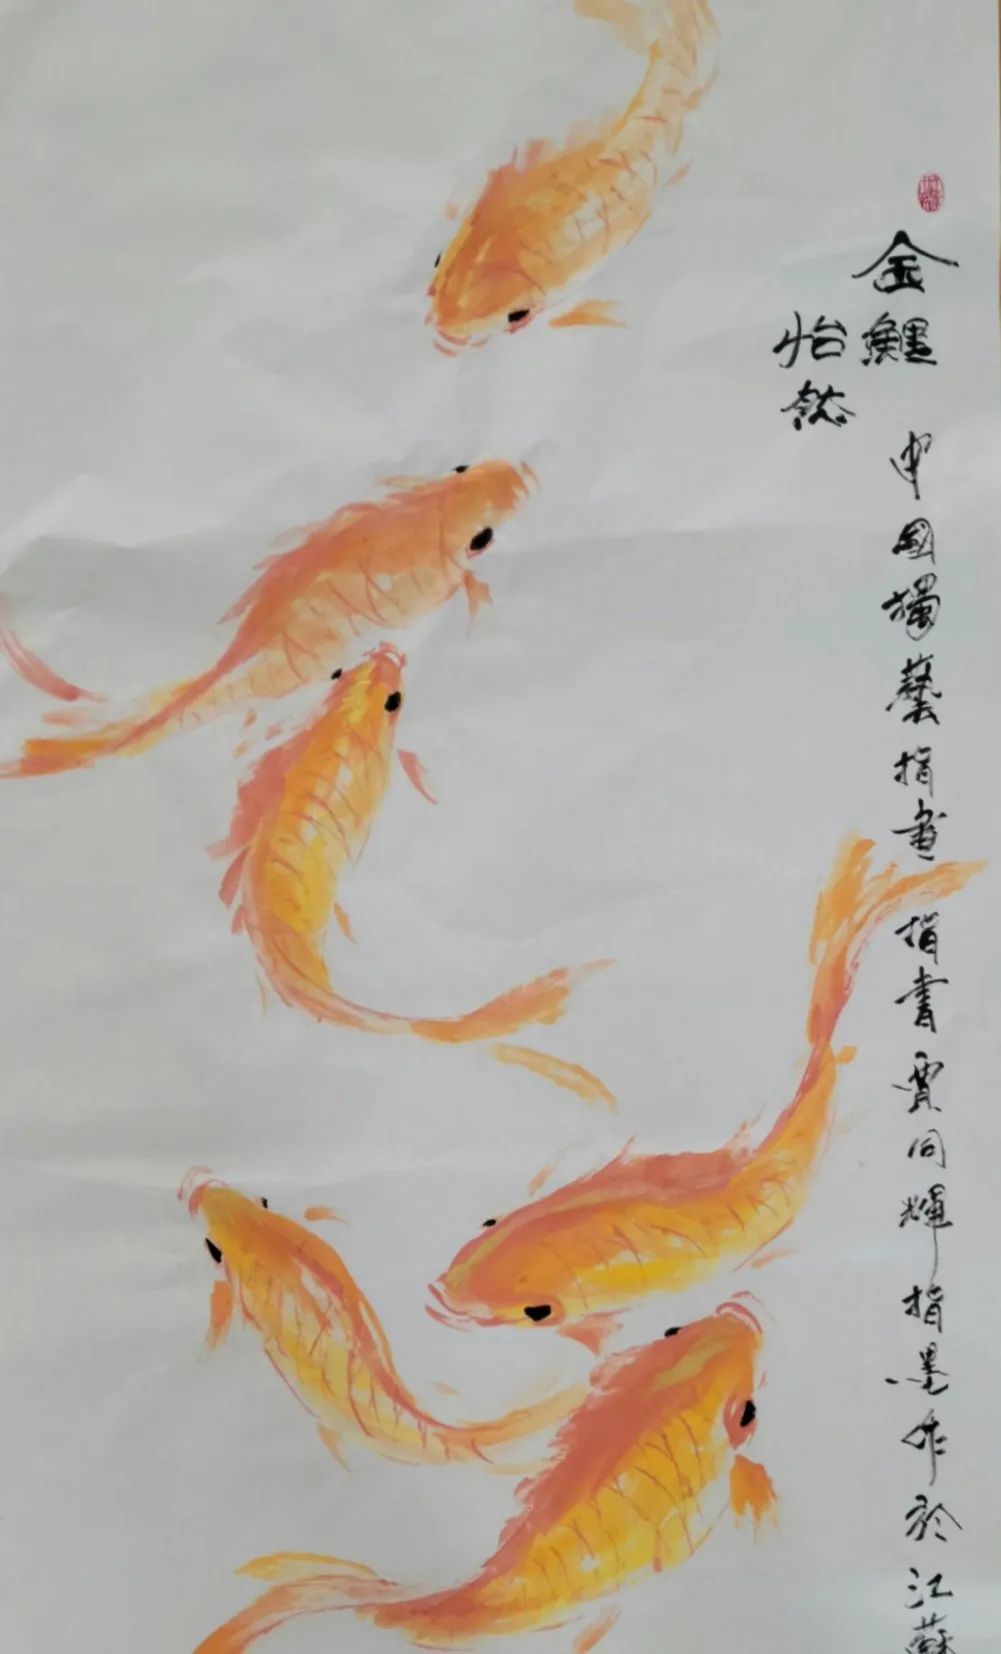 金鲤
怡然
中國獨藝指画指書贾同輝指墨作於江蘇